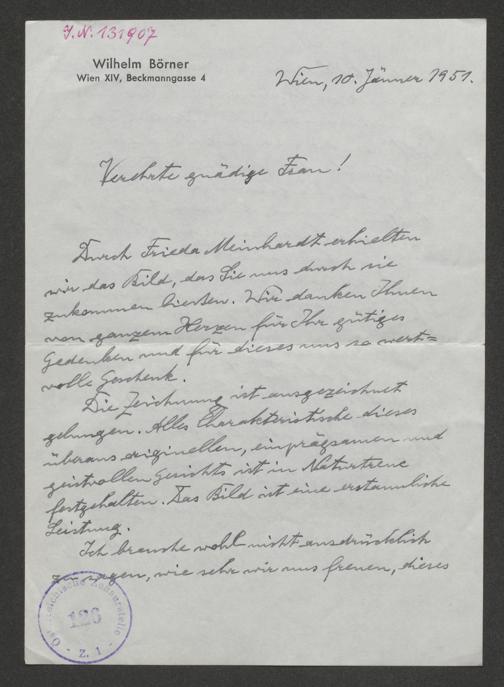 I.N. 131907
Wilhelm Börner
Wien XIV, Beckmanngasse 4
Wien, 10. Jänner 1951.
Verehrte gnädige Frau!
Durch Frieda Meinhardt erhielten
wir das Bild, das Sie uns durch sie
zukommen ließen. Wir danken Ihnen
von ganzem Herzen für Ihr gütiges
Gedenken und für dieses uns so wert=
volle Geschenk.
Die Zeichnung ist ausgezeichnet
gelungen. Alles Charakteristische dieses
überaus originellen, einprägsamen und
geistvollen Gesichts ist in Naturtreue
festgehalten. Das Bild ist eine erstaunliche
Leistung.
Ich brauche wohl nicht ausdrücklich
zu sagen, wie sehr wir uns freuen, dieses
Österreichische Zensurstelle
126
Z. 1